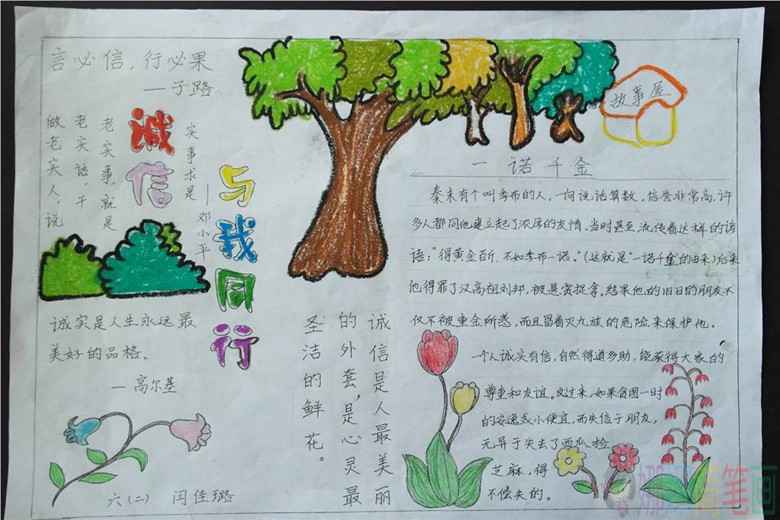 言必信，行必果
—子路
诚信
与我同行
实事求是
老实事，就是
老实话，干
做老实人，说
—邓小平
诚实是人生永远最
美好的品格。
—高尔基
六（二） 闫佳璐
诚信是人最美丽
的外套，是心灵最
圣洁的鲜花。
故事屋
一诺千金
秦末有个叫季布的人，一向说话算数，信誉非常高，许
多人都同他建立起了浓厚的友情。当时甚至流传着这样的谚
语："得黄金百斤，不如季布一诺。"（这就是"一诺千金"的由来）后来
他得罪了汉高祖刘邦，被悬赏捉拿，结果他的旧日的朋友不
仅不被重金所惑，而且冒着灭九族的危险来保护他。
一个人诚实有信，自然得道多助，能获得大家的
尊重和友谊。反过来，如果贪图一时
的安逸或小便宜，而失信于朋友，
无异于失去了西瓜捡
芝麻，得
不偿失的。
娜娜简笔画